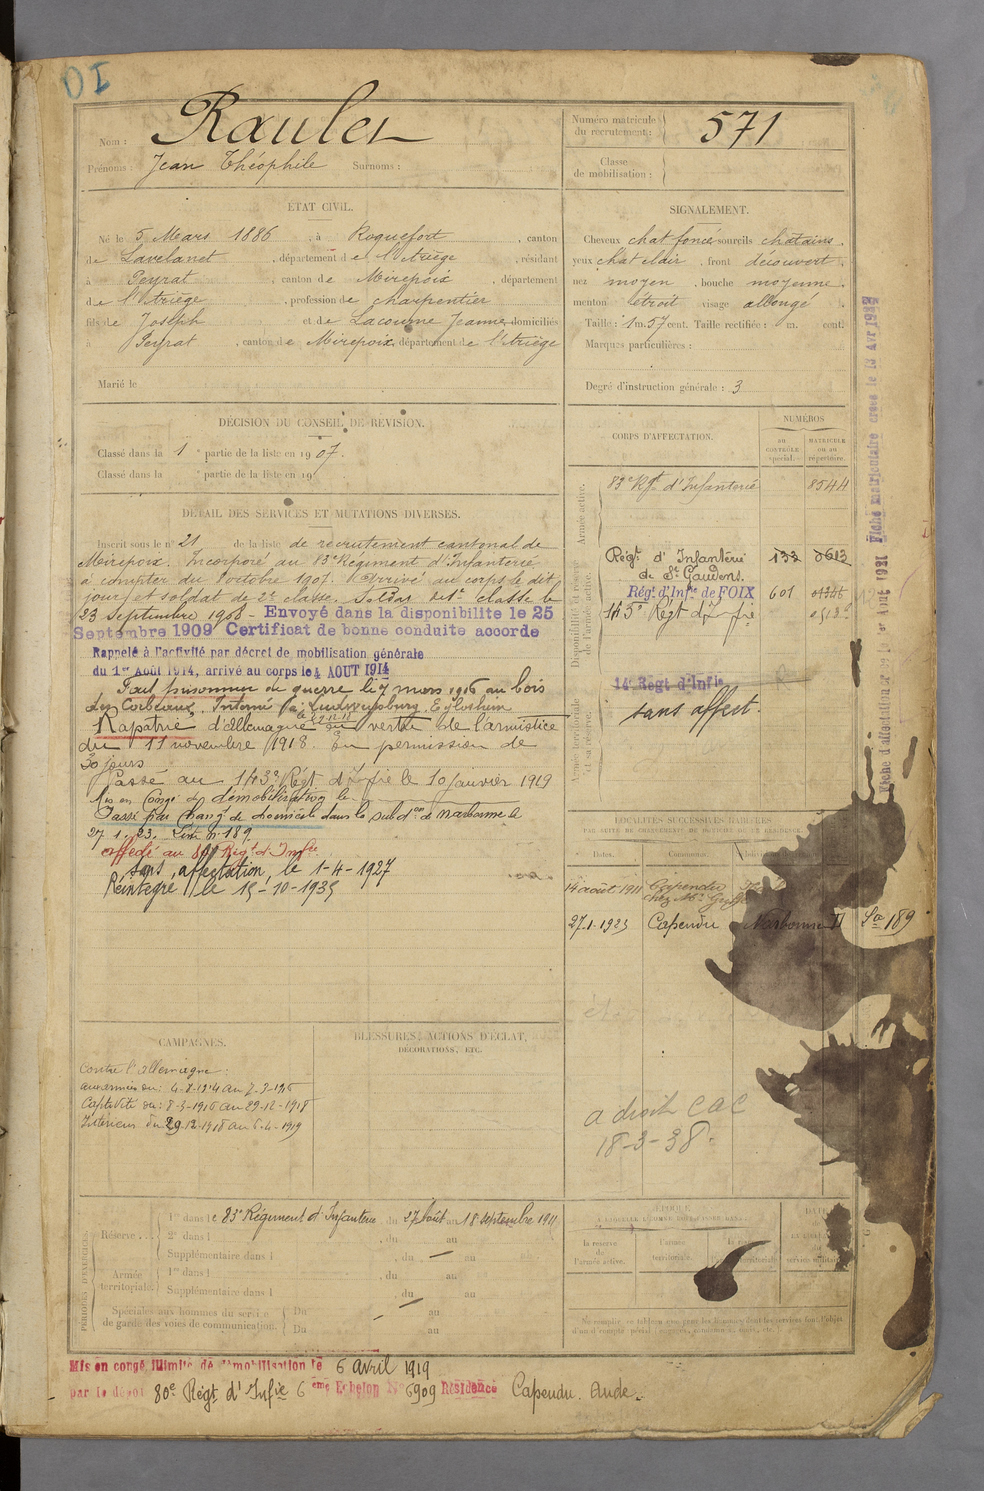 Nom : Raulet
Prénoms : Jean Théophile Surnoms :
Numéro matricule du recrutement : 571
Classe de mobilisation :
ÉTAT CIVIL.
Né le 5 Mars 1886 , à Roquefort , canton
de Lavelanet , département de l'Ariège , résidant
à Peyrat , canton de Mirepoix , département
de l'Ariège , profession de charpentier
fils de Joseph et de Lacourne Jeanne domiciliés
à Peyrat , canton de Mirepoix, département de l'Ariège
Marié le
SIGNALEMENT.
Cheveux chat foncé sourcils châtains
yeux chat clair , front découvert
nez moyen , bouche moyenne
menton étroit visage allongé
Taille : 1 m. 57 cent. Taille rectifiée : m. cent.
Marques particulières :
Degré d'instruction générale : 3
DÉCISION DU CONSEIL DE RÉVISION.
Classé dans la 1 e partie de la liste en 1907.
Classé dans la e partie de la liste en 19
DÉTAIL DES SERVICES ET MUTATIONS DIVERSES.
Inscrit sous le n° 21 de la liste de recrutement cantonal de
Mirepoix. Incorporé au 83e Régiment d'Infanterie
à compter du 8 octobre 1907. Arrivé au corps le dit
jour et soldat de 2e classe. Soldat de 1e classe le
23 Septembre 1908 - Envoyé dans la disponibilite le 25
Septembre 1909 Certificat de bonne conduite accorde
Rappelé à l'activité par décret de mobilisation générale
du 1er Août 1914, arrivé au corps le 4 AOUT 1914
Fait prisonnier de guerre le 7 mars 1916 au bois
des Corbeaux. Interné à Ludwigsburg, Eglosheim
Rapatrié d'Allemagne en vertu de l'armistice
du 11 novembre 1918. En permission de
30 jours
Passé au 143e Régt d'Infie le 10 janvier 1919
Mis en Congé de démobilisation le
Passé par Changt de domicile dans la subdon de Narbonne le
27.1.23. Liste n° 189
affecté au Régt d'Infie
sans affectation, le 1-4-1927
Réintégré le 15-10-1935
CORPS D'AFFECTATION.
NUMÉROS
AU CONTRÔLE spécial.
MATRICULE OU AU répertoire.
Armée active.
83e Rgt d'Infanterie 8544
Disponibilité et réserve de l'armée active.
Régt d'Infanterie 132 0613
de St Gaudens.
Régt d'Infie de FOIX 601
143e Régt d'Infie
Armée territoriale et sa réserve.
14e Régt d'Infie
sans affect.
LOCALITÉS SUCCESSIVES HABITÉES
PAR SUITE DE CHANGEMENT DE DOMICILE OU DE RÉSIDENCE.
Dates. Communes.
14 août 1911 Capendu
27-1-1923 Capendu Narbonne D Sn 189
a droit CAC
18-3-38.
CAMPAGNES.
Contre l'allemagne :
aux armées du : 4-8-1914 au 7-3-1916
Captivité du : 8-3-1916 au 29-12-1918
Intérieur du 29-12-1918 au 6-4-1919
BLESSURES, ACTIONS D'ÉCLAT,
DÉCORATIONS, ETC.
PÉRIODES D'EXERCICES
Réserve... 1re dans le 83e Régiment d'Infanterie du 27 août au 18 septembre 1911
2e dans l , du au
Supplémentaire dans l , du — au
Armée territoriale. 1re dans l , du au
Supplémentaire dans l , du au
Spéciales aux hommes du service
de garde des voies de communication. Du — au
Du au
ÉPOQUE
la réserve de l'armée active.
l'armée territoriale.
Mis en congé illimité de démobilisation le 6 avril 1919
par le dépôt 80e Régt d'Infie 6 eme Echelon No 6909 Résidence Capendu. Aude.
Fiche matriculaire créée le 13 Avr 1922